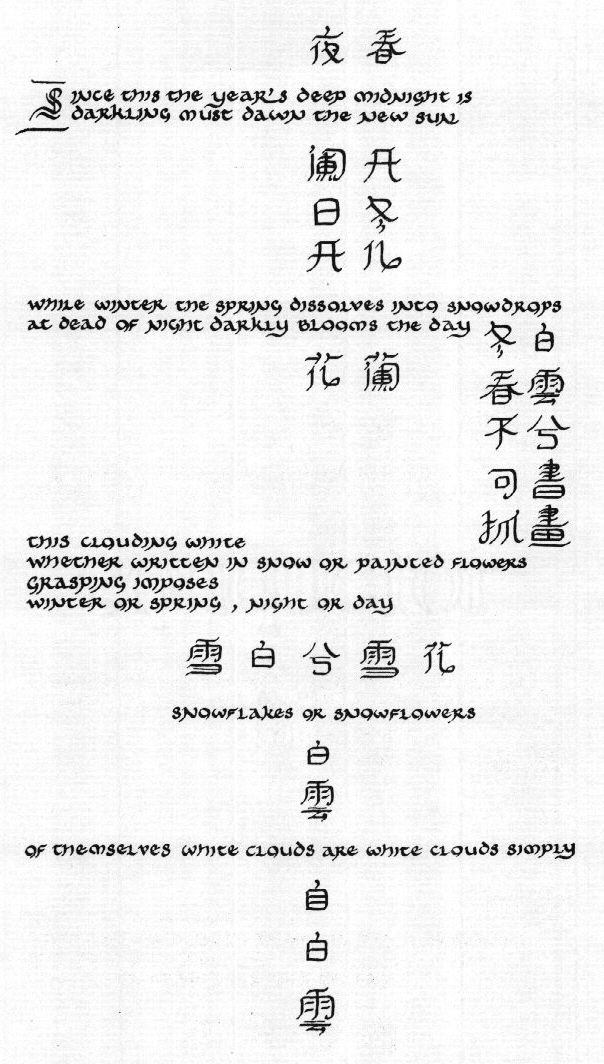 夜 春
Since this the year's deep midnight is
darkling must dawn the new sun
闌 开
日 冬
开 儿
while winter the spring dissolves into snowdrops
at dead of night darkly blooms the day
花 蘭
白雲兮書畫
冬春不可抓
this clouding white
whether written in snow or painted flowers
grasping imposes
winter or spring , night or day
雪 白 兮 雪 花
snowflakes or snowflowers
白
雲
of themselves white clouds are white clouds simply
自
白
雲